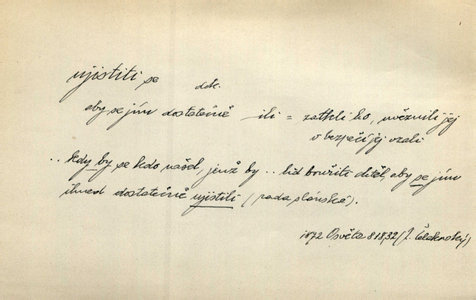 ujistiti se dok.
aby se jím dostatečně ili = zatkli ho, uvěznili jej
v bezpečí jej vzali
.. kdy by se kdo našel, jenž by .. lid bouřiti chtěl, aby se jím
ihned dostatečně ujistili (rada slánská).
1872 Osvěta 8 1832 (J. Čelakovský)